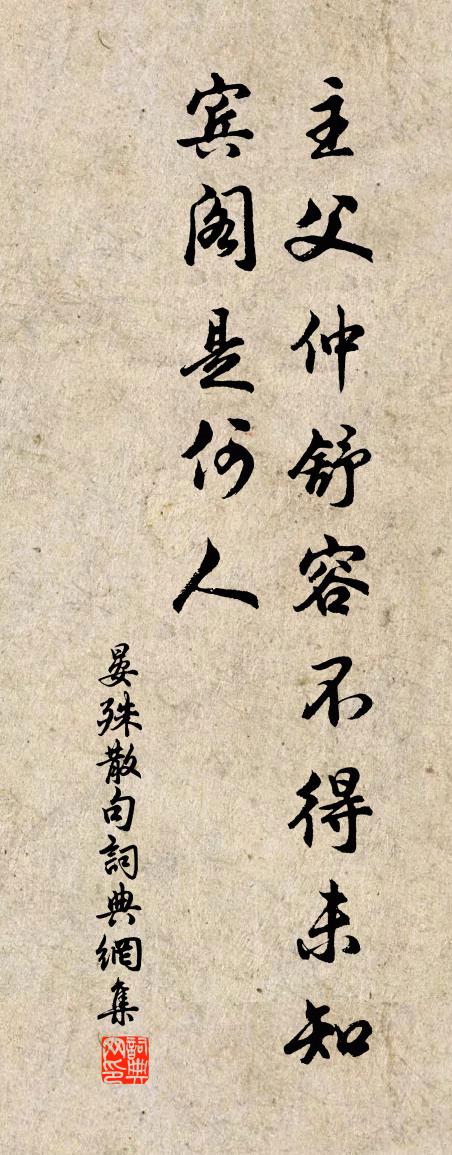 主父仲舒容不得未知
宾阁是何人
晏殊散句詞典網集
詞典网印